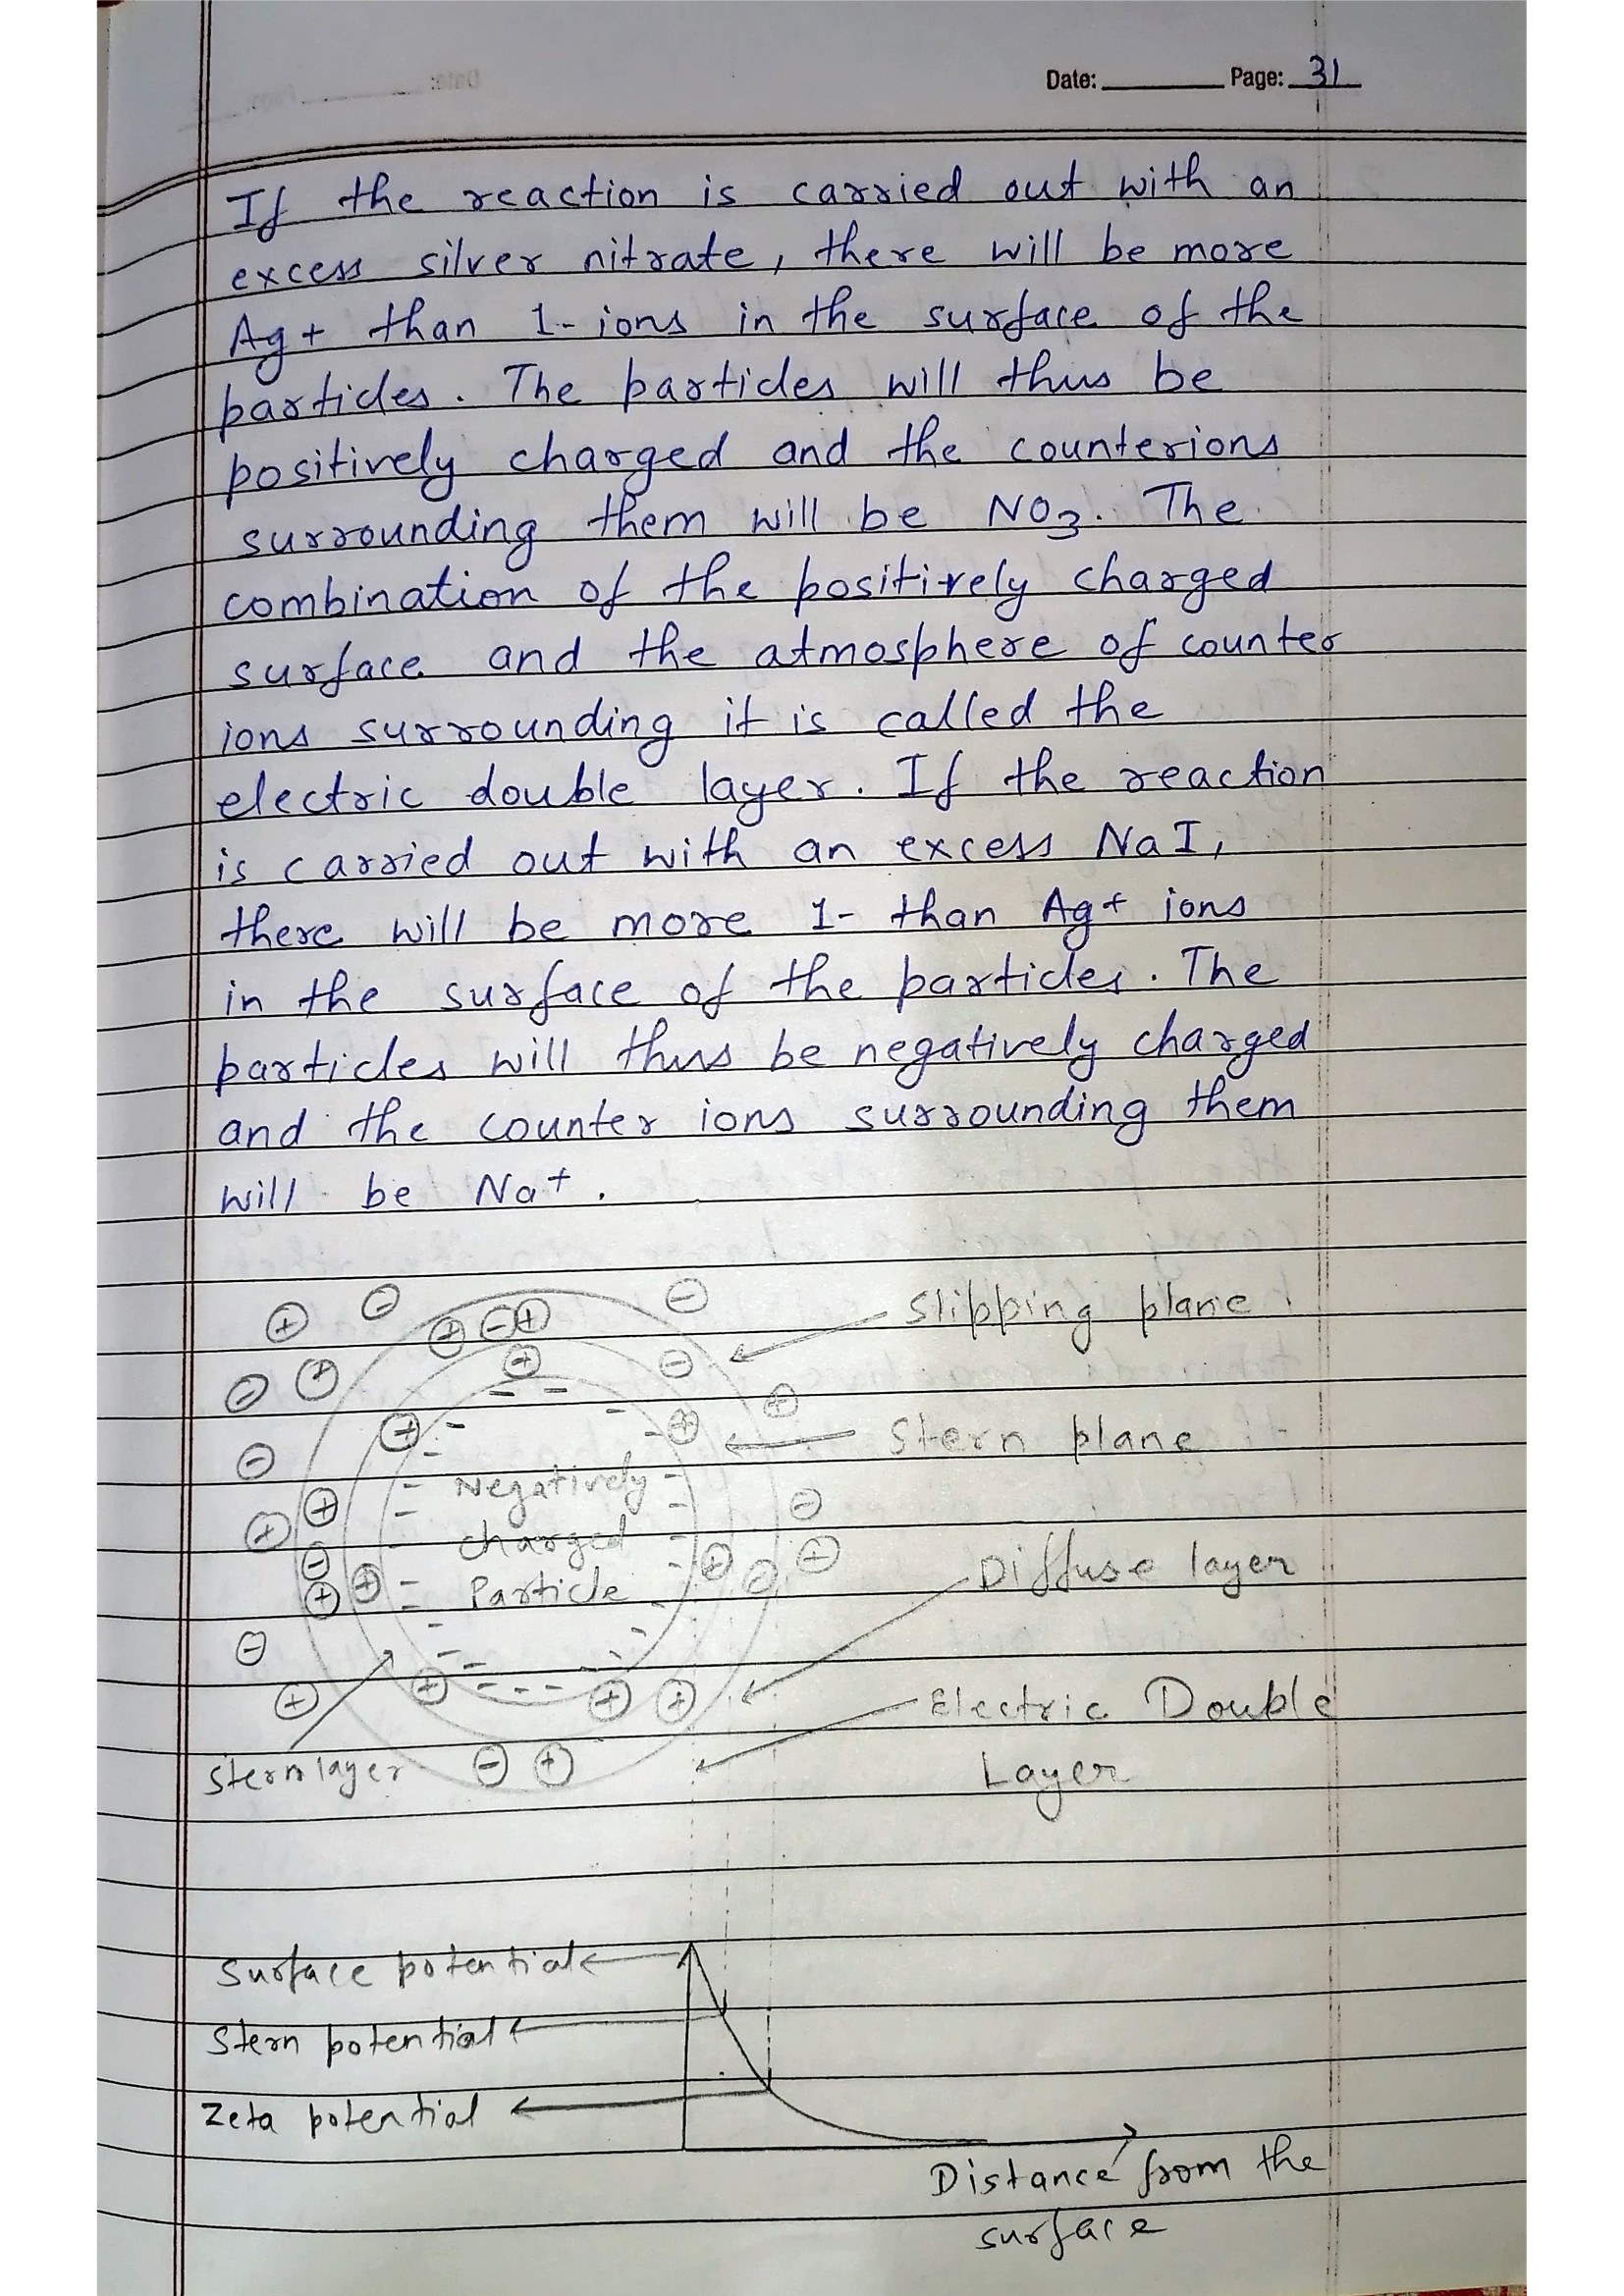 Date: Page: 31
If the reaction is carried out with an
excess silver nitrate, there will be more
Ag+ than 1- ions in the surface of the
particles. The particles will thus be
positively charged and the counterions
surrounding them will be NO3. The
combination of the positively charged
surface and the atmosphere of counter
ions surrounding it is called the
electric double layer. If the reaction
is carried out with an excess NaI,
there will be more 1- than Ag+ ions
in the surface of the particles. The
particles will thus be negatively charged
and the counter ions surrounding them
will be Na+.
Slipping plane
Stern plane
Negatively
charged
Particle
Diffuse layer
Electric Double
Layer
Stern layer
Surface potential
Stern potential
Zeta potential
Distance from the
surface